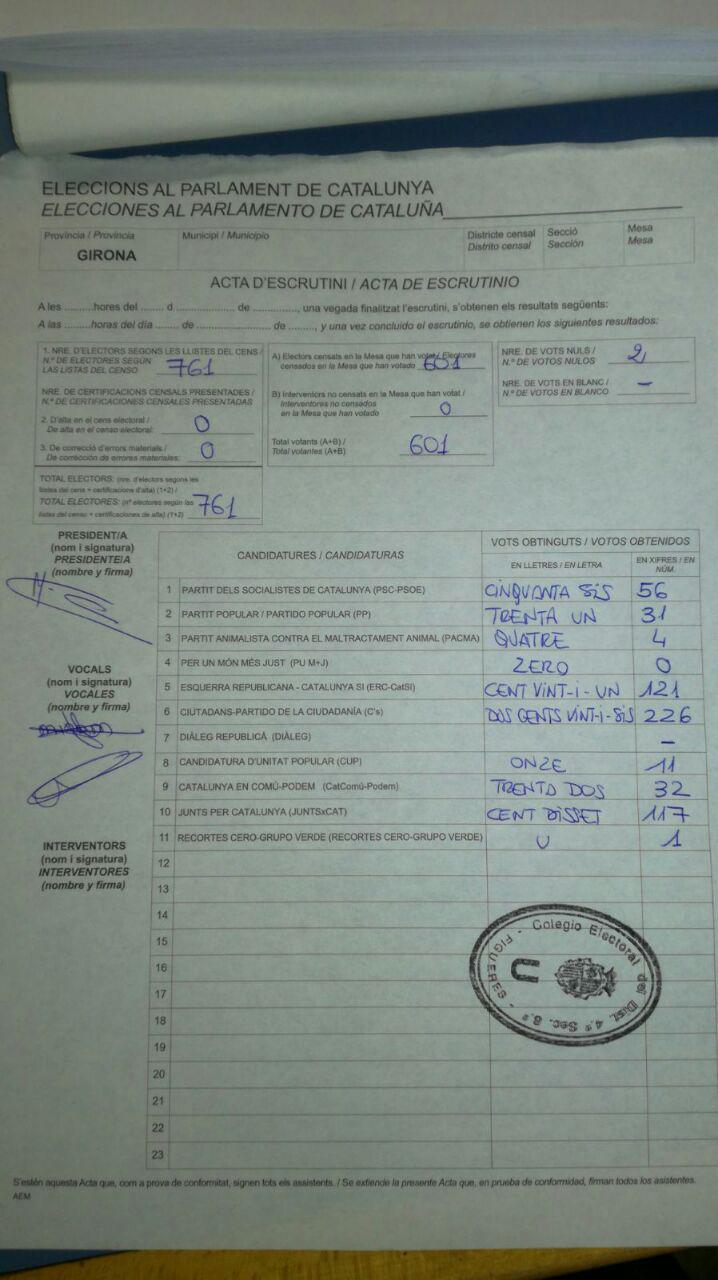 ELECCIONS AL PARLAMENT DE CATALUNYA
ELECCIONES AL PARLAMENTO DE CATALUÑA
Província / Provincia
GIRONA
Municipi / Municipio
Districte censal
Distrito censal
Secció
Sección
Mesa
Mesa
ACTA D'ESCRUTINI / ACTA DE ESCRUTINIO
A les ..........hores del ........ d ..................... de ..............., una vegada finalitzat l'escrutini, s'obtenen els resultats següents:
A las .........horas del día ....... de ........................... de ........., y una vez concluido el escrutinio, se obtienen los siguientes resultados:
1. NRE. D'ELECTORS SEGONS LES LLISTES DEL CENS /
N.º DE ELECTORES SEGÚN
LAS LISTAS DEL CENSO 761
NRE. DE CERTIFICACIONS CENSALS PRESENTADES /
N.º DE CERTIFICACIONES CENSALES PRESENTADAS
2. D'alta en el cens electoral /
De alta en el censo electoral: 0
3. De correcció d'errors materials /
De corrección de errores materiales: 0
TOTAL ELECTORS: (nre. d'electors segons les
llistes del cens + certificacions d'alta) (1+2) /
TOTAL ELECTORES: (nº electores según las
listas del censo + certificaciones de alta) (1+2) 761
A) Electors censats en la Mesa que han votat / Electores
censados en la Mesa que han votado 601
B) Interventors no censats en la Mesa que han votat /
Interventores no censados
en la Mesa que han votado 0
Total votants (A+B) /
Total votantes (A+B) 601
NRE. DE VOTS NULS /
N.º DE VOTOS NULOS 2
NRE. DE VOTS EN BLANC /
N.º DE VOTOS EN BLANCO -
PRESIDENT/A
(nom i signatura)
PRESIDENTE/A
(nombre y firma)
VOCALS
(nom i signatura)
VOCALES
(nombre y firma)
INTERVENTORS
(nom i signatura)
INTERVENTORES
(nombre y firma)
CANDIDATURES / CANDIDATURAS
VOTS OBTINGUTS / VOTOS OBTENIDOS
EN LLETRES / EN LETRA
EN XIFRES / EN NÚM.
1 PARTIT DELS SOCIALISTES DE CATALUNYA (PSC-PSOE) CINQUANTA SIS 56
2 PARTIT POPULAR / PARTIDO POPULAR (PP) TRENTA UN 31
3 PARTIT ANIMALISTA CONTRA EL MALTRACTAMENT ANIMAL (PACMA) QUATRE 4
4 PER UN MÓN MÉS JUST (PU M+J) ZERO 0
5 ESQUERRA REPUBLICANA - CATALUNYA SI (ERC-CatSI) CENT VINT-I-UN 121
6 CIUTADANS-PARTIDO DE LA CIUDADANÍA (C's) DOS CENTS VINT-I-SIS 226
7 DIÀLEG REPUBLICÀ (DIÀLEG) -
8 CANDIDATURA D'UNITAT POPULAR (CUP) ONZE 11
9 CATALUNYA EN COMÚ-PODEM (CatComú-Podem) TRENTA DOS 32
10 JUNTS PER CATALUNYA (JUNTSxCAT) CENT DISSET 117
11 RECORTES CERO-GRUPO VERDE (RECORTES CERO-GRUPO VERDE) U 1
12
13
14
15
16
17
18
19
20
21
22
23
Colegio Electoral del Dist. 4.º Sec. 8.ª - FIGUERES -
U
S'estén aquesta Acta que, com a prova de conformitat, signen tots els assistents. / Se extiende la presente Acta que, en prueba de conformidad, firman todos los asistentes.
AEM